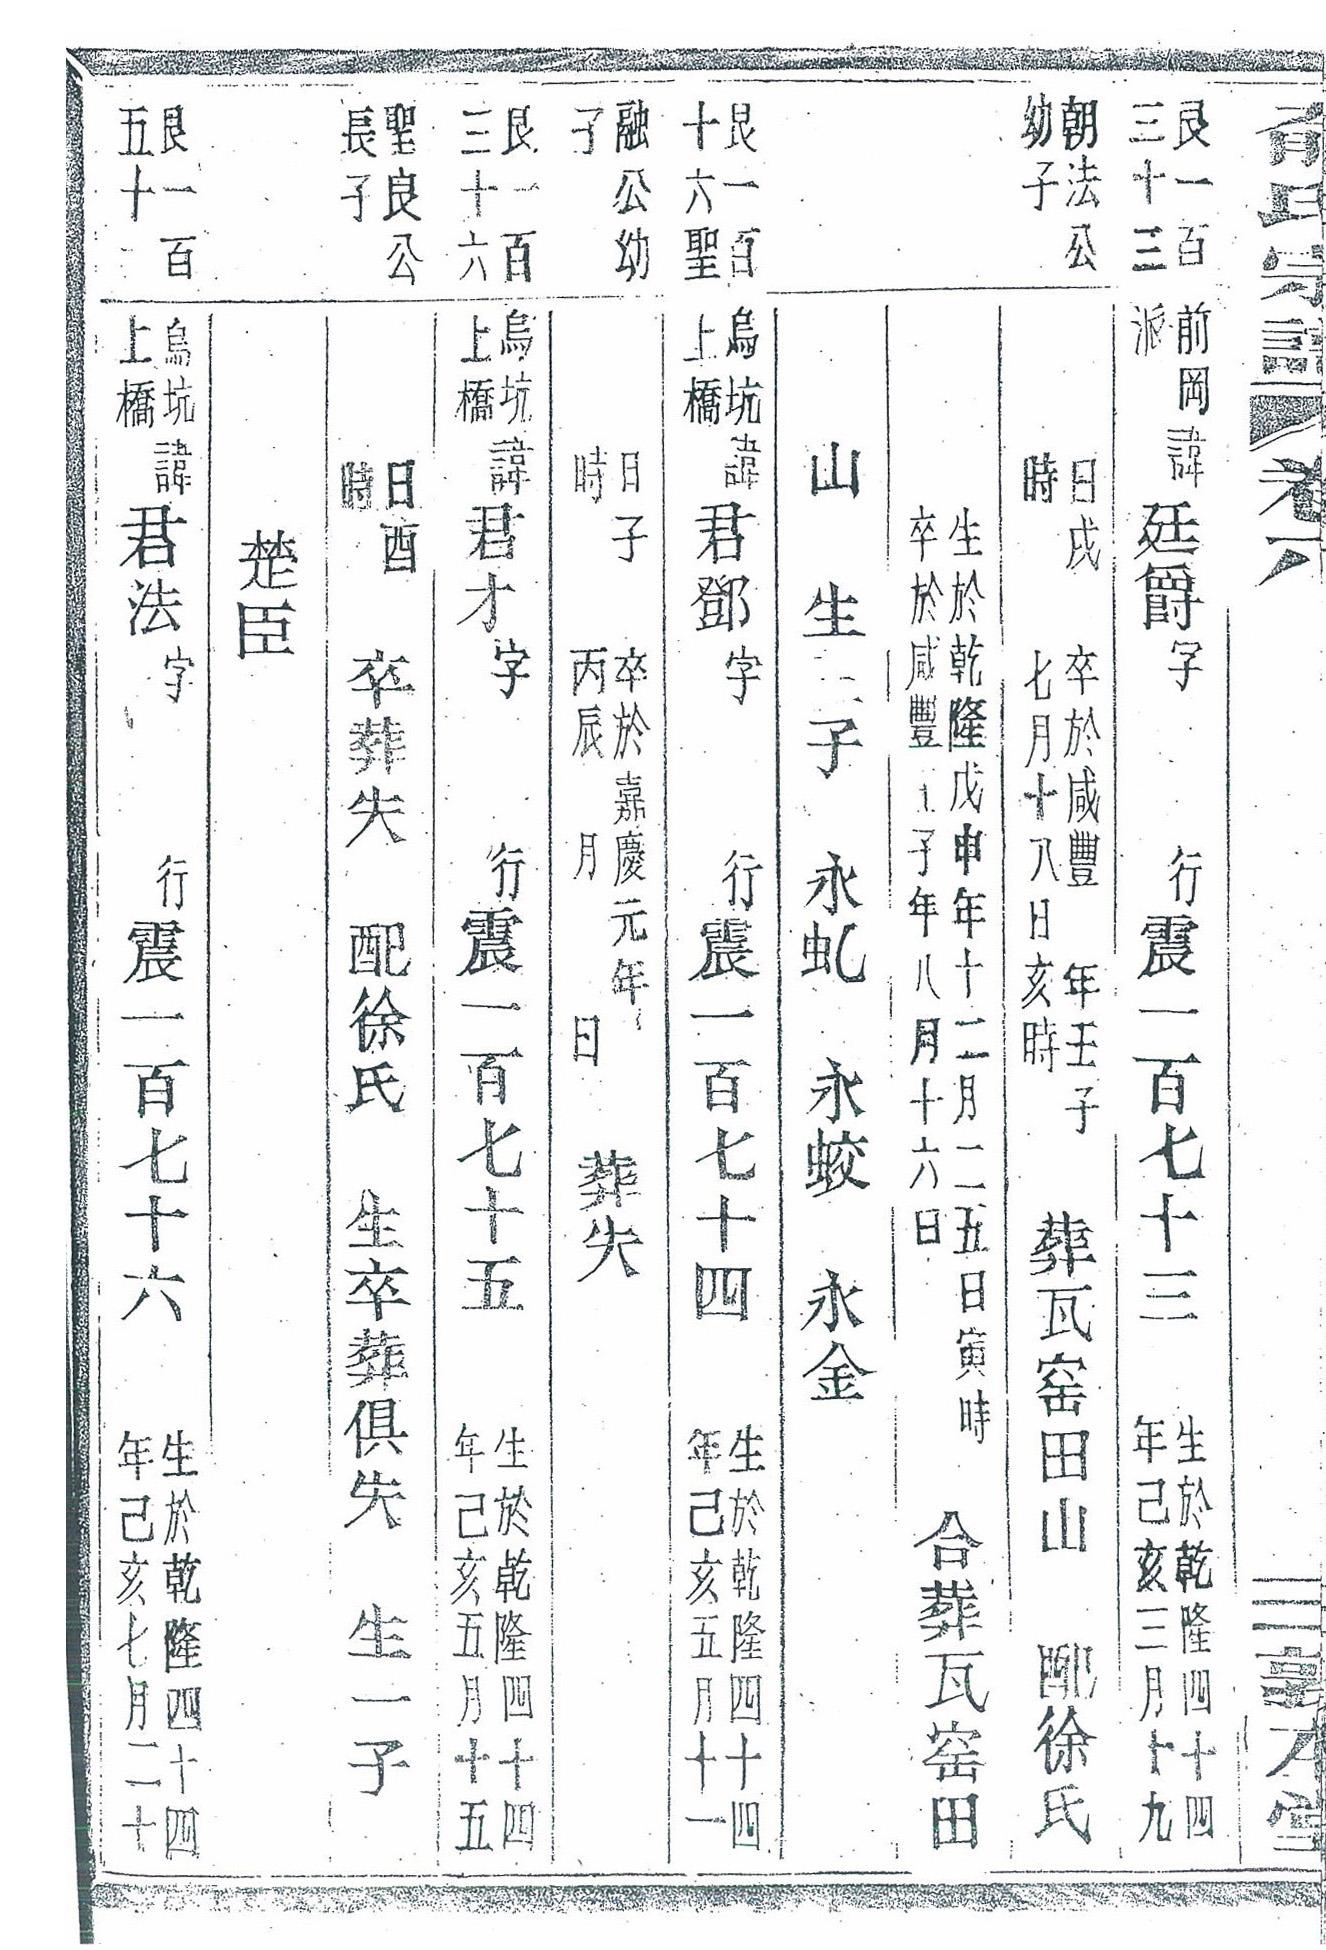 氏宗譜 卷六
艮一百
三十三
前岡
派
諱廷爵字 行震一百七十三
生於乾隆四十四
年己亥三月十九
朝法公
幼子
日戌
時
卒於咸豐 年壬子
七月十八日亥時
葬瓦窑田山 配徐氏
生於乾隆戊申年十二月二五日寅時
卒於咸豐 子年八月十六日
合葬瓦窑田
山 生 子 永虬 永蛟 永金
艮一百
十六聖
烏坑
上橋
諱君鄧字 行震一百七十四
生於乾隆四十四
年己亥五月十一
融公幼
子
日子
時
卒於嘉慶元年
丙辰 月 日
葬失
艮一百
三十六
烏坑
上橋
諱君才字 行震一百七十五
生於乾隆四十四
年己亥五月十五
聖良公
長子
日酉
時
卒葬失 配徐氏 生卒葬俱失 生一子
楚臣
艮一百
五十
烏坑
上橋
諱君法字 行震一百七十六
生於乾隆四十四
年己亥七月二十